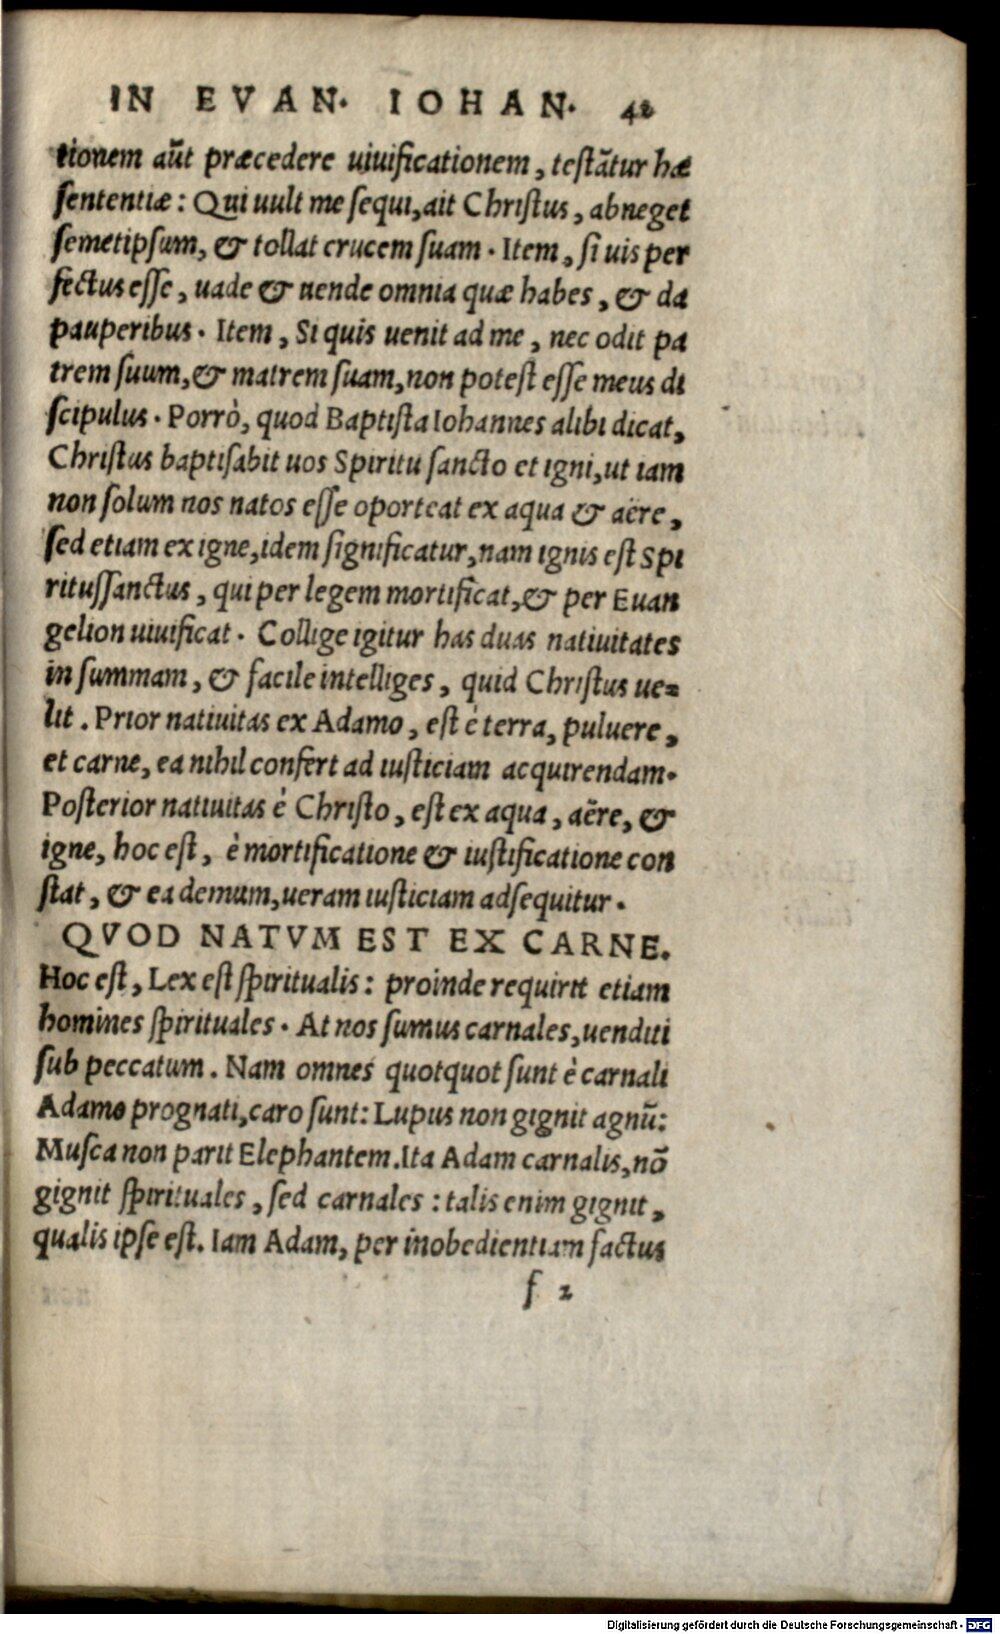 IN EVAN. IOHAN. 42
tionem aũt præcedere uiuificationem, testãtur hæ
sententiæ: Qui uult me sequi, ait Christus, abneget
semetipsum, & tollat crucem suam. Item, si uis per
fectus esse, uade & uende omnia quæ habes, & da
pauperibus. Item, Si quis uenit ad me, nec odit pa
trem suum, & matrem suam, non potest esse meus di
scipulus. Porrò, quod Baptista Iohannes alibi dicat,
Christus baptisabit uos Spiritu sancto et igni, ut iam
non solum nos natos esse oporteat ex aqua & aëre,
sed etiam ex igne, idem significatur, nam ignis est Spi
ritussanctus, qui per legem mortificat, & per Euan
gelion uiuificat. Collige igitur has duas natiuitates
in summam, & facile intelliges, quid Christus ue=
lit. Prior natiuitas ex Adamo, est è terra, puluere,
et carne, ea nihil confert ad iusticiam acquirendam.
Posterior natiuitas è Christo, est ex aqua, aëre, &
igne, hoc est, è mortificatione & iustificatione con
stat, & ea demum, ueram iusticiam adsequitur.
QVOD NATVM EST EX CARNE.
Hoc est, Lex est spiritualis: proinde requirit etiam
homines spirituales. At nos sumus carnales, uenditi
sub peccatum. Nam omnes quotquot sunt è carnali
Adamo prognati, caro sunt: Lupus non gignit agnũ:
Musca non parit Elephantem. Ita Adam carnalis, nõ
gignit spirituales, sed carnales: talis enim gignit,
qualis ipse est. Iam Adam, per inobedientiam factus
f 2
Digitalisierung gefördert durch die Deutsche Forschungsgemeinschaft - DFG